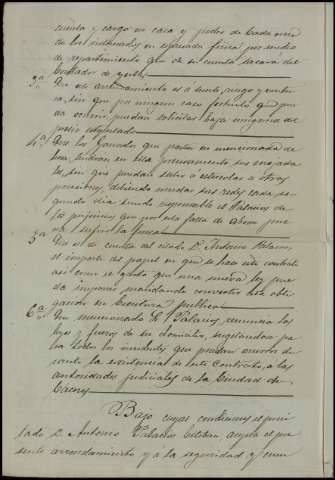 cuenta y cargo en caza y
de los ordenados en espresada finca por medio
de repartimiento que de su cuenta sacará del
Contador de
3ª Que este arrendamiento es a
sin que por ningun caso fortuito que pue-
da ocurrir, puedan solicitar baja ninguna del
precio estipulado
4ª Que los ganados que pasten en mencionada de-
hesa, tendran en ella precisamente sus majada-
les, sin que puedan salir a estercolar a otras
posesiones, debiendo mudar sus redes cada se-
gundo dia siendo responsable el Palacios de
los perjuicios que por esta falta de abono pue-
da sufrir la finca
5ª Que es de cuenta del citado D. Antonio Palacios,
el importe del papel en que se hace este contrato
asi como el gasto que una nueva ley pue-
da imponer mandando convertir esta obli-
gacion en Escritura publica
6ª Que mencionado Sr. Palacios renuncia las
leyes y fueros de su domicilio, sugetandose pa-
ra todos los incidentes que puedan ocurrir du-
rante la existencia de este Contrato, a las
autoridades judiciales de la Ciudad de
Caceres
Bajo cuyas condiciones el
lado D. Antonio Palacios Esteban acepta el pre-
sente arrendamiento y a la seguridad y cum